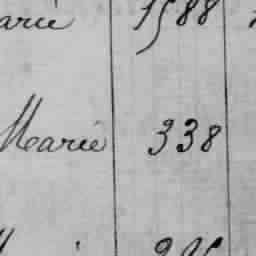 arie 1588
Marie 338